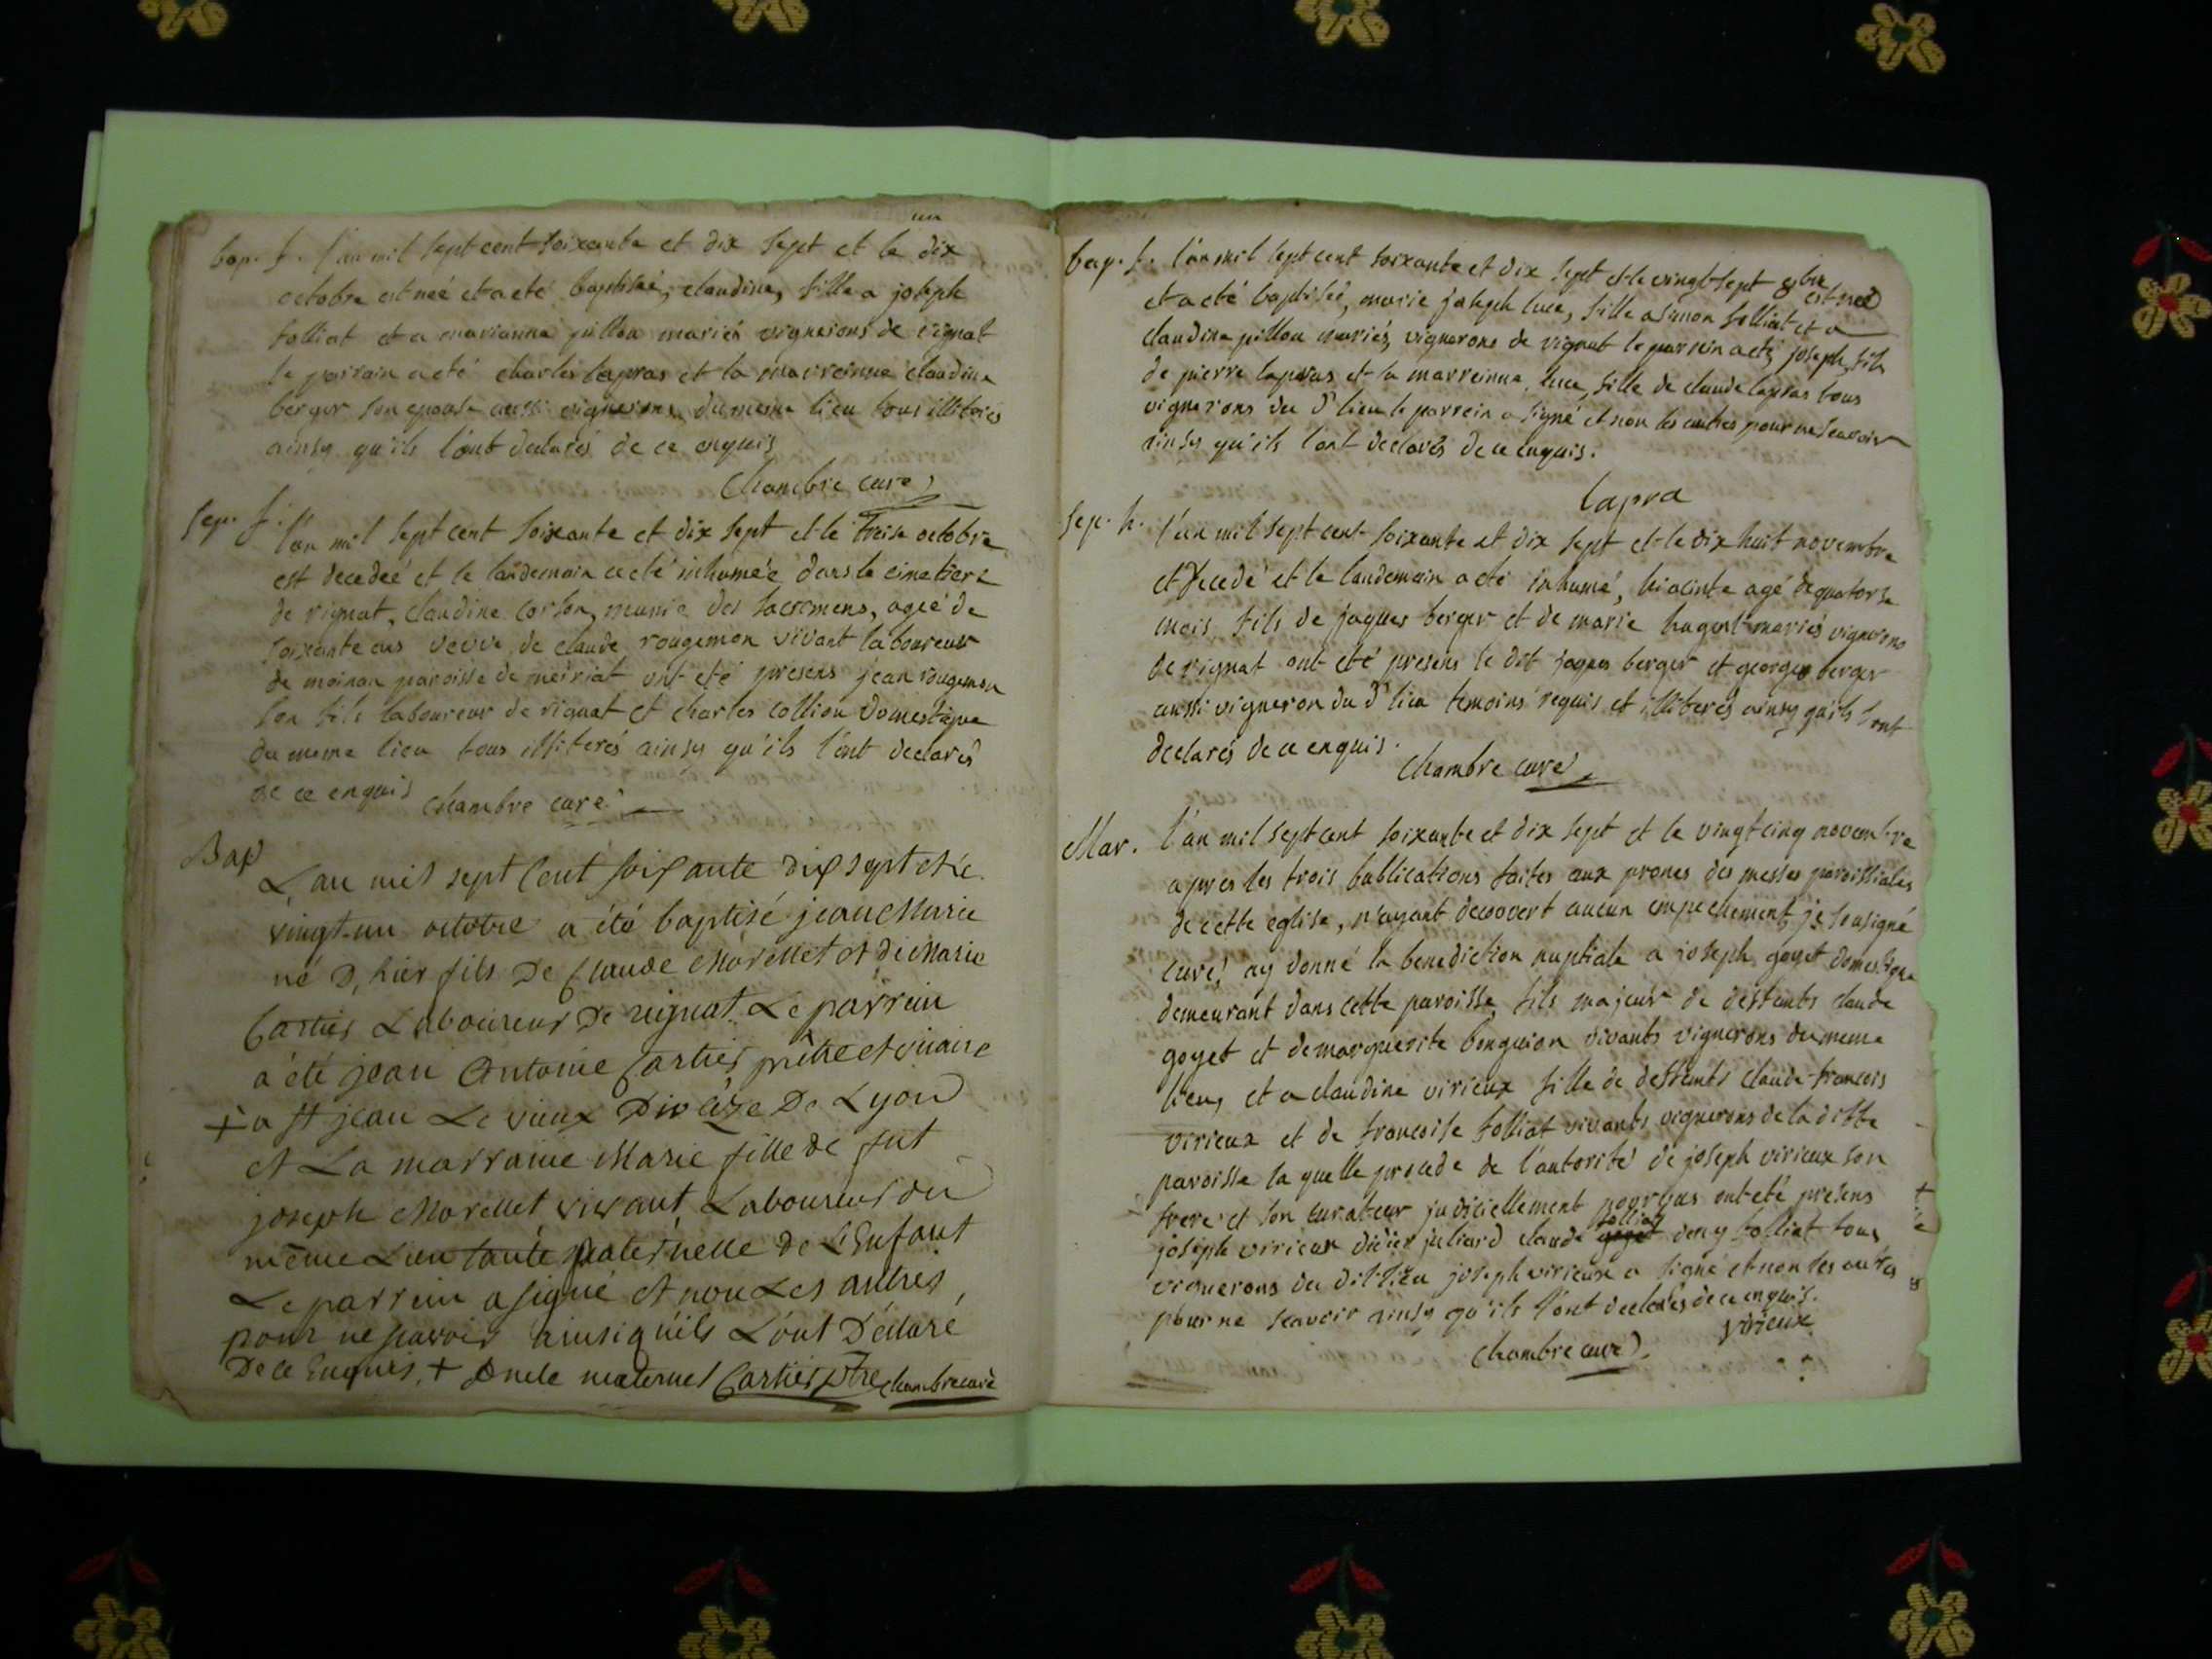 bap. f. l'an mil sept cent soixante et dix sept et le dix
octobre est née et a eté baptisée, claudine, fille a joseph
folliat et a marianne pillon mariés vignerons de rignat
le parrain a eté charles lapras et la marreinne claudine
berger son epouse aussi vignerons du meme lieu tous illiterés
ainsy qu'ils l'ont declarés de ce enquis
Chambre curé
sep. f. l'an mil sept cent soixante et dix sept et le treise octobre
est decedeé et le landemain a eté inhumée dans le cimetiere
de rignat, claudine corlon, munie des sacremens, ageé de
soixante ans veuve de claude rougemon vivant laboureur
de moinan paroisse de meiriat ont eté presens jean rougemon
son fils laboureur de rignat et charles collion domestique
du meme lieu tous illiterés ainsy qu'ils l'ont declarés
de ce enquis chambre curé
Bap
L'an mil sept Cent soixante dix sept et le
vingt-un octobre a été baptisé jean Marie
né D'hier fils De Claude Morellet et de Marie
Cartier Laboureur De rignat Le parrein
a été jean Antoine Cartier prêtre et vicaire
+ a St jean Le vieux Diocèze De Lyon
et La marraine Marie fille de fut
joseph Morellet vivant Laboureur du
même Lieu tante paternelle De L'Enfant
Le parrein a signé et non Les autres
pour ne savoir ainsi qu'ils L'ont Déclaré
De Ce Enquis. + Oncle maternel Cartier ptre Chambre curé
bap. f. l'an mil sept cent soixante et dix sept et le vingt sept 8bre
est neé
et a eté baptisée, marie joseph luce, fille a simon folliat et a
claudine pillon mariés, vignerons de rignat le parrein a eté joseph fils
de pierre lapras et la marreinne, luce, fille de claude lapras tous
vignerons du dt lieu le parrein a signé et non les autres pour ne scavoir
ainsy qu'ils l'ont declarés de ce enquis.
lapra
sep. h. l'an mil sept cent soixante et dix sept et le dix huit novembre
est decedé et le landemain a eté inhumé, hiacinte agé de quatorse
mois fils de jaques berger et de marie mariés vignerons
de rignat ont eté presens le dit jaques berger et george berger
aussi vigneron du dt lieu temoins requis et illiterés ainsy qu'ils l'ont
declarés de ce enquis.
Chambre curé
Mar. l'an mil sept cent soixante et dix sept et le vingt cinq novembre
apres les trois publications faites aux prones des messes paroissiales
de cette eglise, n'ayant decouvert aucun empechement, je sousigné
curé, ay donné la benediction nuptiale a joseph goyet domestique
demeurant dans cette paroisse, fils majeur de deffunts claude
goyet et de marguerite bonguion vivants vignerons du meme
lieu, et a claudine virieux fille de deffunts claude francois
virieux et de francoise folliat vivants vignerons de la ditte
paroisse la quelle procede de l'autorité de joseph virieux son
frere et son curateur judiciellement ont eté presens
folliat
joseph virieux didier juliard claude goyet deny folliat tous
vignerons du dit lieu joseph virieux a signé et non les autres
pour ne scavoir ainsy qu'ils l'ont declarés de ce enquis.
virieux
Chambre curé